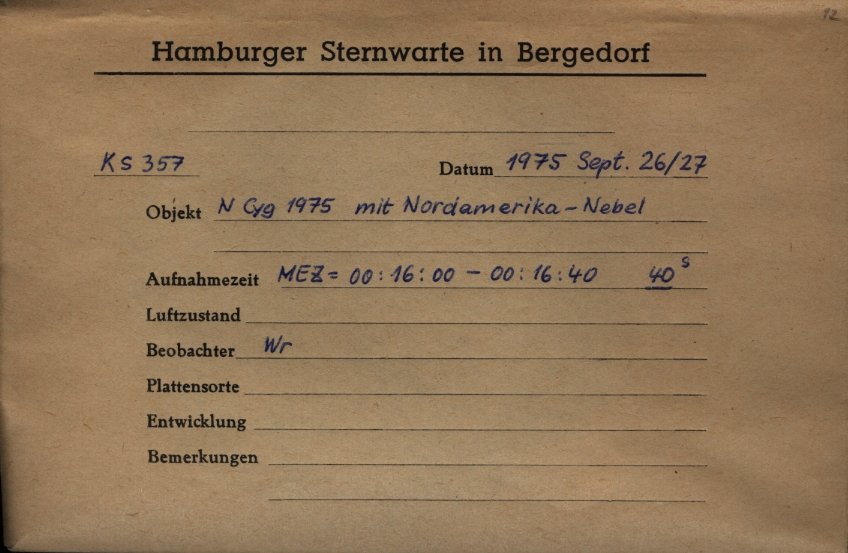 12
Hamburger Sternwarte in Bergedorf
KS 357 Datum 1975 Sept. 26/27
Objekt N Cyg 1975 mit Nordamerika-Nebel
Aufnahmezeit MEZ = 00:16:00 - 00:16:40 40s
Luftzustand
Beobachter Wr
Plattensorte
Entwicklung
Bemerkungen